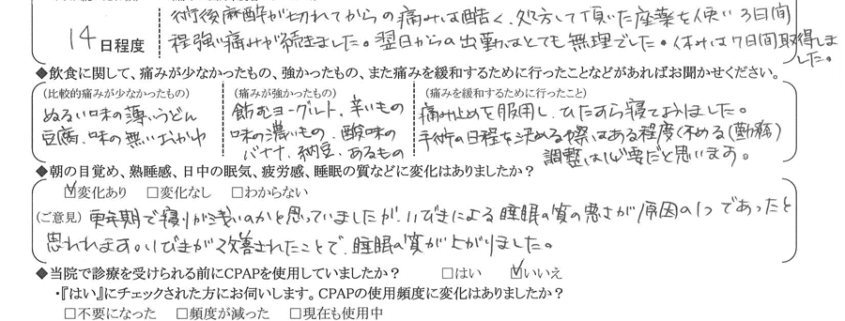 術後麻酔が切れてからの痛みは酷く、処方して頂いた座薬を使い3日間
14日程度
程強い痛みが続きました。翌日からの出勤はとても無理でした。休みは7日間取得しま
した。
◆飲食に関して、痛みが少なかったもの、強かったもの、また痛みを緩和するために行ったことなどがあればお聞かせください。
(比較的痛みが少なかったもの) (痛みが強かったもの) (痛みを緩和するために行ったこと)
ぬるい味の薄いうどん 飲むヨーグルト、辛いもの 痛み止めを服用し、ひたすら寝ておりました。
豆腐、味の無いおかゆ 味の濃いもの、酸味の 手術の日程を決める際はある程度休める(勤務)
バナナ、納豆、あるもの 調整は必要だと思います。
◆朝の目覚め、熟睡感、日中の眠気、疲労感、睡眠の質などに変化はありましたか?
☑変化あり □変化なし □わからない
(ご意見) 更年期で寝りが浅いのかと思っていましたが、いびきによる睡眠の質の悪さが原因の1つであったと
思われます。いびきが改善されたことで、睡眠の質が上がりました。
◆当院で診療を受けられる前にCPAPを使用していましたか? □はい ☑いいえ
・『はい』にチェックされた方にお伺いします。CPAPの使用頻度に変化はありましたか?
□不要になった □頻度が減った □現在も使用中